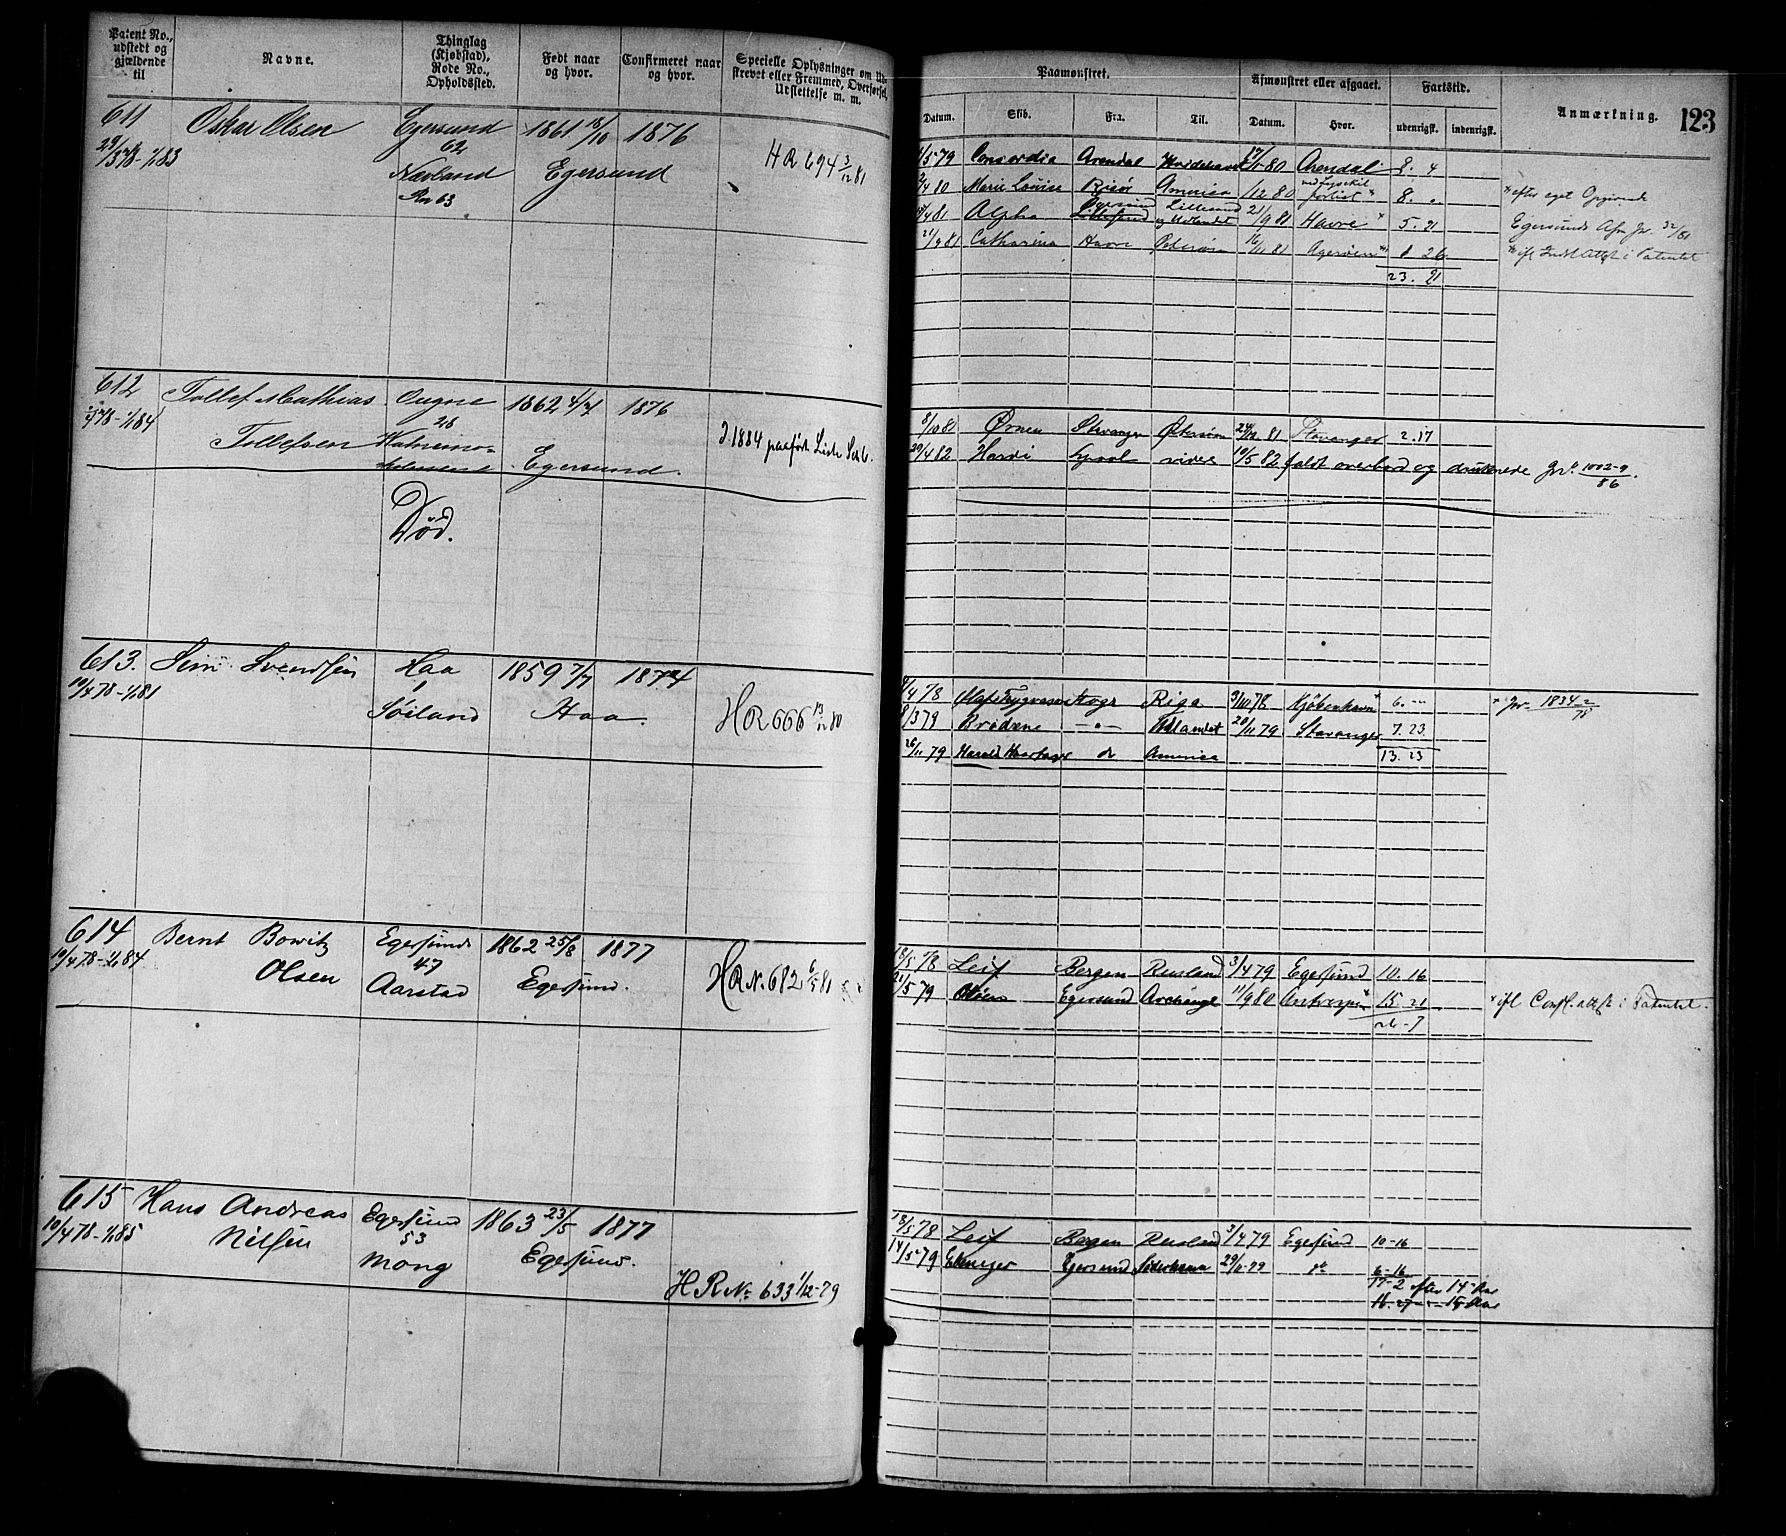 Patent No., udstedt og gjældende til
Navne.
Thinglag (Kjøbstad). Rode No., Opholdssted.
Født naar og hvor.
Confirmeret naar og hvor.
Specielle Oplysninger om Udskrevet eller Fremmed, Overførsel, Udslettelse m. m.
Paamønstret.
Afmønstret eller afgaaet.
Fartstid.
Anmærkning.
123
Datum.
Skib.
Fra.
Til.
Datum.
Hvor.
udenrigsk.
indenrigsk.
611 Oskar Olsen Egersund 1861 18/10 1876
62
29/3 78-1/1 83 Nævland Egersund H R 694 3/12 81
Rn 63
1/5 79 Concordia Arendal 17/11 80 Arendal 2. 4
2/4 80 Marie Louise Risør America /12 80 forlist * 8. * efter eget Opgivende
Egersund Lillesand
/4 81 Alpha Lillesand og Udlandet 21/9 81 Havre * 5. 21 Egersunds Afm Jr. 32/81
21/9 81 Catharina Havre Østersøen 16/11 81 8 26
23. 21
612 Tollef Mathias Ougne 1862 4/7 1876
28
78-1/1 84 Tollefsen Egersund.
I 1884 paaført Liste
Død.
8/10 81 Ørnen Stavanger Østersøen 24/12 81 Stavanger 2. 17
29/4 82 Hardi videre 10/5 82 faldt overbord og druknede Jnr. 1002-9/86.
613. Svendsen Haa 1859 7/7 1874
1
10/4 78-1/1 81 Søiland Haa. H R 666 13/12 80
/4 78 Olaf Trygvason Riga 3/10 78 Kjøbenhavn * 6. - * Jnr. 1834-2/78
8/3 79 Brødrene -"- Udlandet 20/11 79 Stavanger 7. 23
26/11 79 Harald Haarfager do America 13. 23
614 Bernt Bowitz Egersund 1862 25/8 1877
47
10/4 78-1/1 84 Olsen Aarstad Egersund. H R N. 682 6/5 81
18/5 78 Leif Bergen Rusland 3/4 79 Egersund 10. 16
21/5 79 Egersund Archangel 11/9 80 Antwerpen * 15. 21 * ifl Consl. attest i Patentet.
26-7
615 Hans Andreas Egersund 1863 23/5 1877
53
10/4 78-1/1 85 Nilsen Mong Egersund.
H R No 633 1/12-79
18/5 78 Leif Bergen Rusland 3/4 79 Egersund 10-16
14/5 79 Ebeneser Egersund 29/11-79 do 6-16
17-2 efter 14 Aar
16. 27 - - 15 Aar